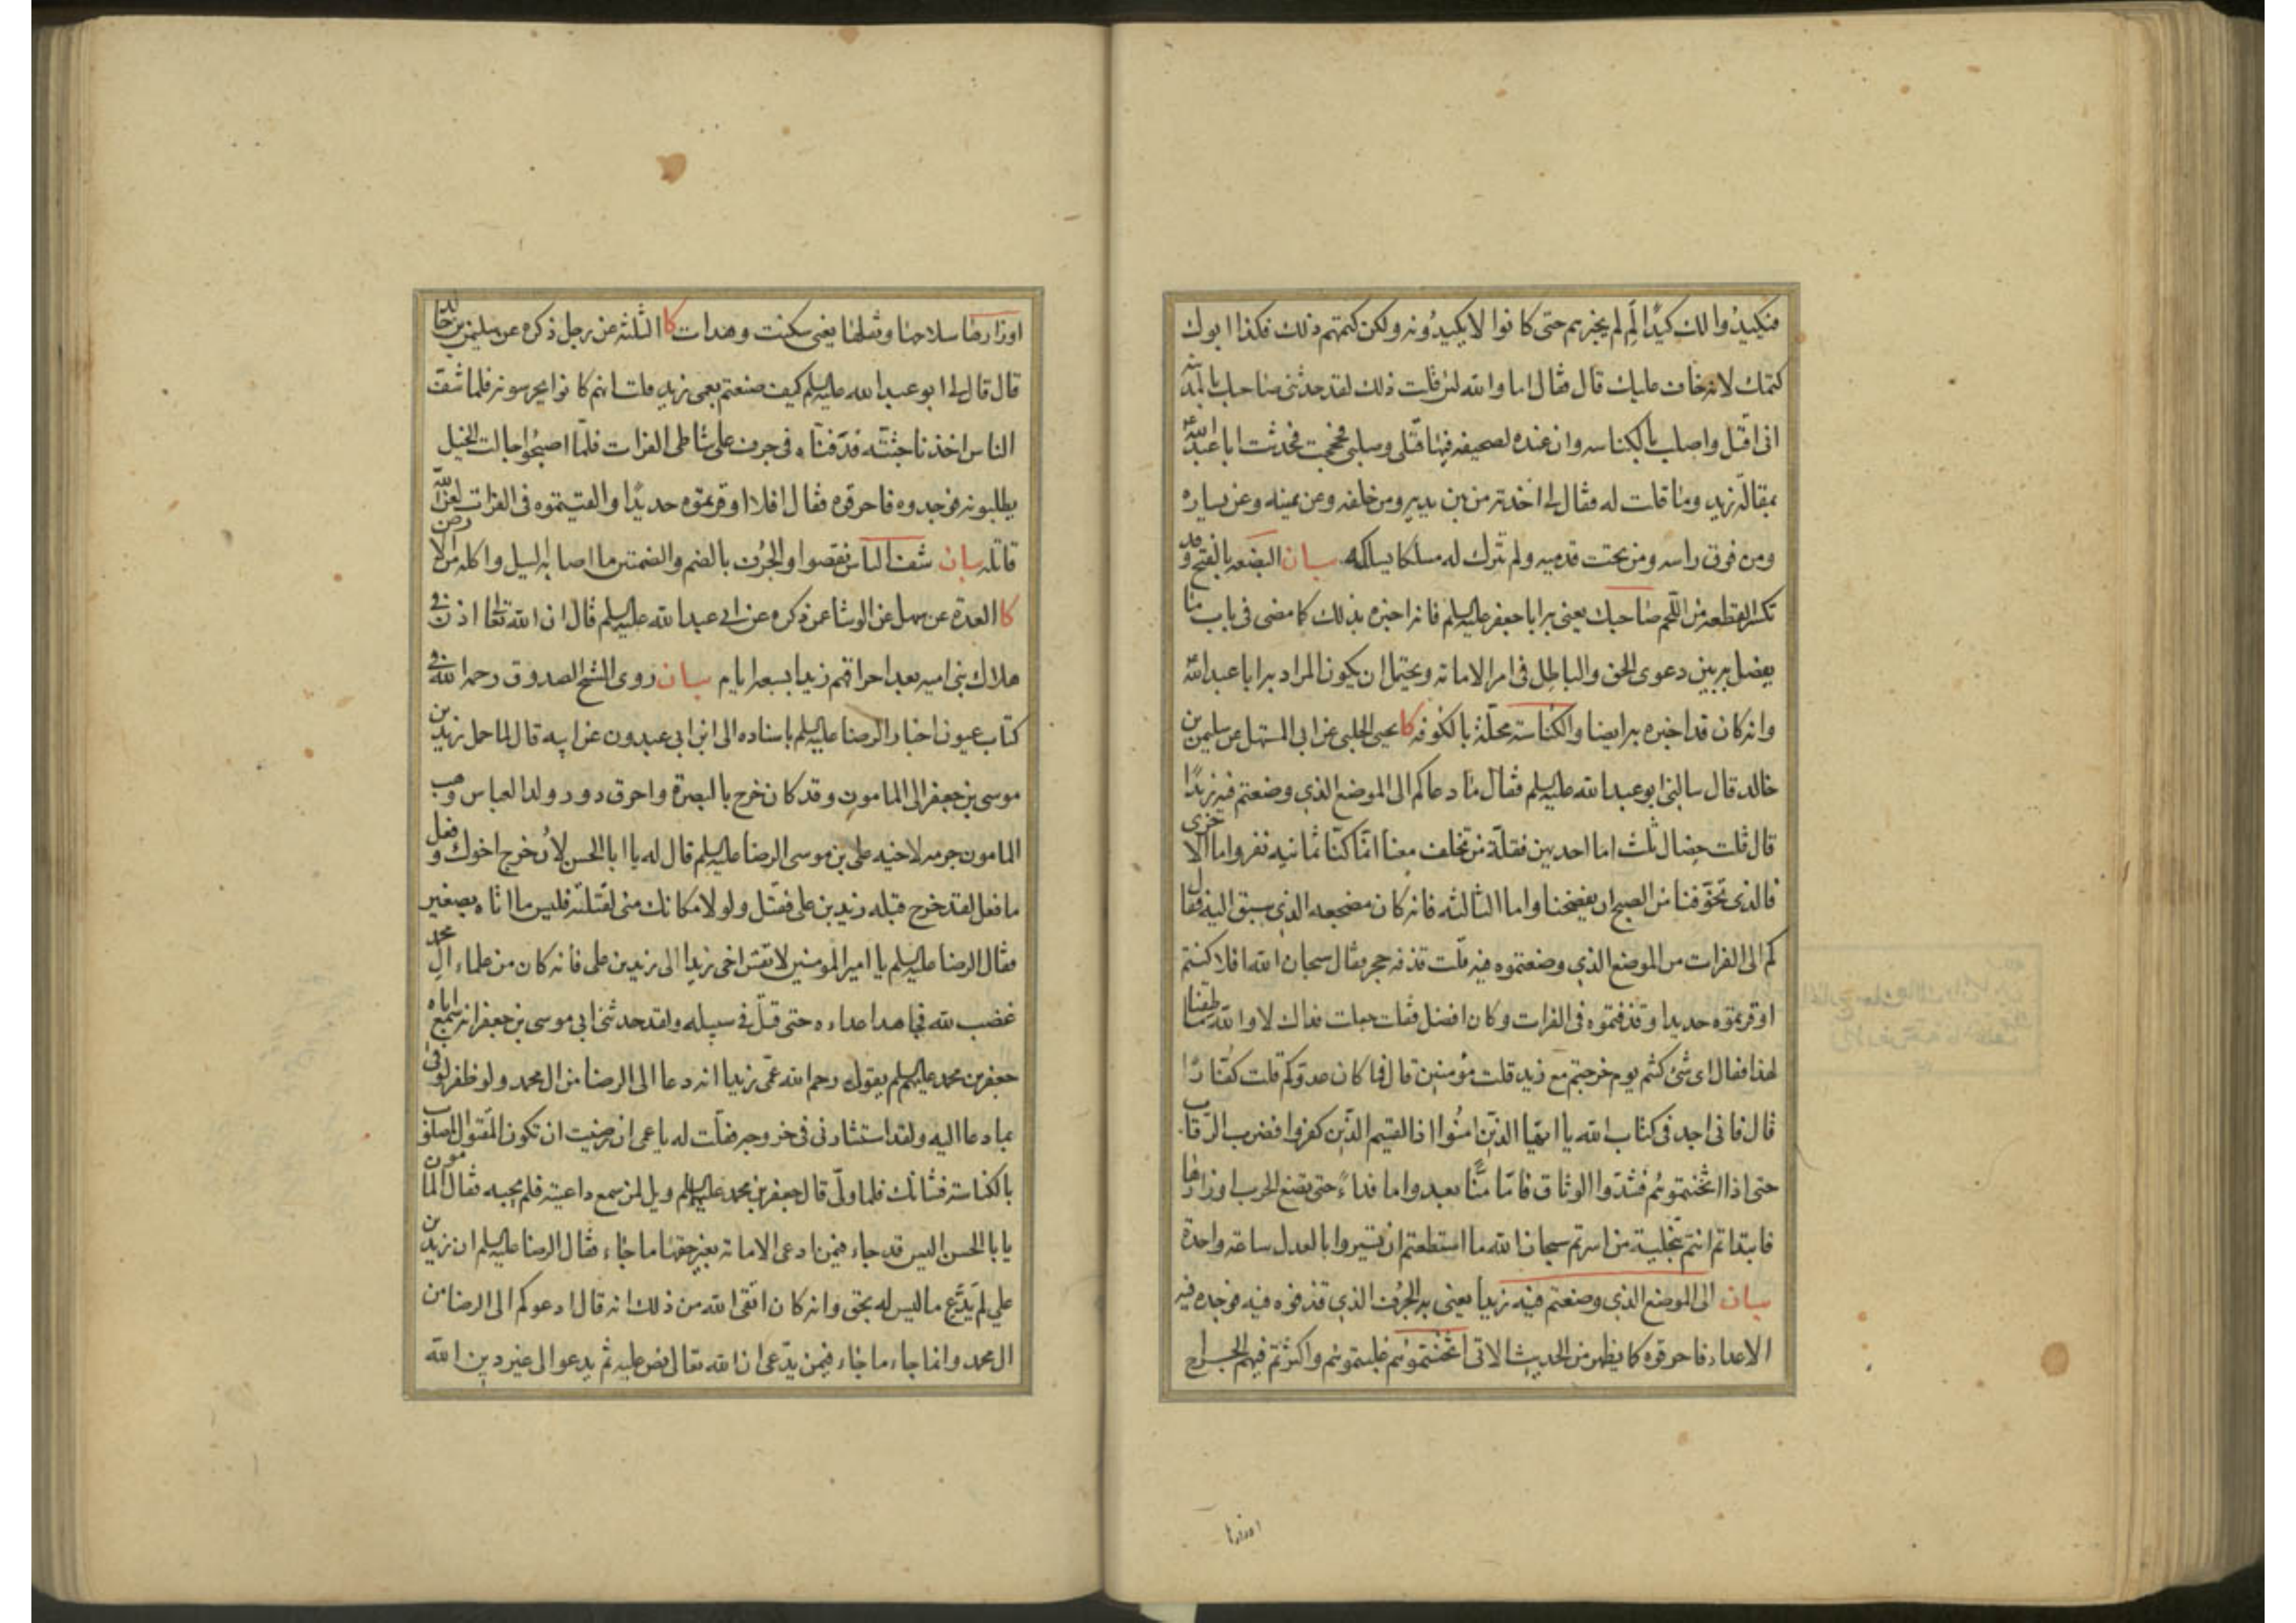 فيكيدوا لك كيدا لم لم يخبرهم حتى كانوا لا يكيدونه ولكن كتمهم ذلك فكذا ابوك
كتمك لانه خاف عليك قال فقال اما والله لئن قلت ذلك لقد حدثنى صاحبك بالمدينة
انى اقتل واصلب بالكناسه وان عنده لصحيفه فيها قتلى وصلبى فحججت فحدثت ابا عبدالله ع
بمقالة زيد وما قلت له فقال لى اخذته من بين يديه ومن خلفه وعن يمينه وعن يساره
ومن فوق راسه ومن تحت قدميه ولم تترك له مسلكا يسلكه بيان البضعه بالفتح وقد
تكسر القطعه من اللحم صاحبك يعنى به ابا جعفر عليه السلم فانه اخبره بذلك كما مضى فى باب ما
يفصل به بين دعوى الحق والباطل فى امر الامامه ويحتمل ان يكون المراد به ابا عبدالله
وانه كان قد اخبره به ايضا والكناسة محلة بالكوفه كا يحيى الحلبى عن ابى المستهل عن سليمن بن
خالد قال سالنى ابو عبدالله عليه السلم فقال ما دعاكم الى الموضع الذى وضعتم فيه زيدا
قال قلت خصال ثلث اما احديهن فقلة من تخلف معنا انما كنا ثمانيه نفر واما الاخرى
فالذى تخوفنا من الصبح ان يفضحنا واما الثالثه فانه كان مضجعه الذى سبق اليه فقال
كم الى الفرات من الموضع الذى وضعتموه فيه قلت قذفه حجر فقال سبحان الله افلا كنتم
اوقرتموه حديدا وقذفتموه فى الفرات وكان افضل فقلت جعلت فداك لا والله ما طقنا
لهذا فقال اى شئ كنتم يوم خرجتم مع زيد قلت مؤمنين قال فما كان عدوكم قلت كفارا
قال فانى اجد فى كتاب الله يا ايها الذين امنوا اذا لقيتم الذين كفروا فضرب الرقاب
حتى اذا اثخنتموهم فشدوا الوثاق فاما منا بعد واما فداء حتى تضع الحرب اوزارها
فابتداتم انتم بتخلية من اسرتم سبحان الله ما استطعتم ان تسيروا بالعدل ساعة واحدة
بيان الى الموضع الذى وضعتم فيه زيدا يعنى به الجرف الذى قذفوه فيه فوجده فيه
الاعداء فاحرقوه كما يظهر من الحديث الاتى اثخنتموهم غلبتموهم واكثرتم فيهم الجراح
اوزارها
اوزارها سلاحها وثقلها يعنى سكنت وهدات كا الثلثه عن رجل ذكره عن سليمن بن خالد
قال قال لى ابو عبدالله عليه السلم كيف صنعتم بعمى زيد قلت انهم كانوا يحرسونه فلما شف
الناس اخذنا جثته فدفناه فى جرف على شاطى الفرات فلما اصبحوا جالت الخيل
يطلبونه فوجدوه فاحرقوه فقال افلا اوقرتموه حديدا والقيتموه فى الفرات لعن الله
قاتله بيان شف الناس نقصوا والجرف بالضم والضمتين ما اصابه السيل واكله من الارض
كا العدة عن سهل عن الوشا عمن ذكره عن ابى عبدالله عليه السلم قال ان الله تعالى اذن فى
هلاك بنى اميه بعد احراقهم زيدا بسبعه ايام بيان روى الشيخ الصدوق رحمه الله فى
كتاب عيون اخبار الرضا عليه السلم باسناده الى ابن ابى عبدون عن ابيه قال لما حمل زيد بن
موسى بن جعفر الى المامون وقد كان خرج بالبصرة واحرق دور ولد العباس وهب
المامون جرمه لاخيه على بن موسى الرضا عليه السلم قال له يا ابا الحسن لان خرج اخوك وفعل
ما فعل لقد خرج قبله زيد بن على فقتل ولولا مكانك منى لقتلته فليس ما اتاه بصغير
فقال الرضا عليه السلم يا امير المومنين لا تقس اخى زيدا الى زيد بن على فانه كان من علماء ال محمد
غضب لله فجاهد اعداءه حتى قتل فى سبيله ولقد حدثنى ابى موسى بن جعفر انه سمع اباه
جعفر بن محمد عليهم السلم يقول رحم الله عمى زيدا انه دعا الى الرضا من ال محمد ولو ظفر لوفى
بما دعا اليه ولقد استشارنى فى خروجه فقلت له يا عمى ان رضيت ان تكون المقتول المصلوب
بالكناسة فشانك فلما ولى قال جعفر بن محمد عليه السلم ويل لمن سمع داعيته فلم يجبه فقال المامون
يا با الحسن اليس قد جاء فيمن ادعى الامامة بغير حقها ما جاء فقال الرضا عليه السلم ان زيد بن
على لم يدع ما ليس له بحق وانه كان اتقى الله من ذلك انه قال ادعوكم الى الرضا من
ال محمد وانما جاء ما جاء فيمن يدعى ان الله تعالى نص عليه ثم يدعو الى غير دين الله